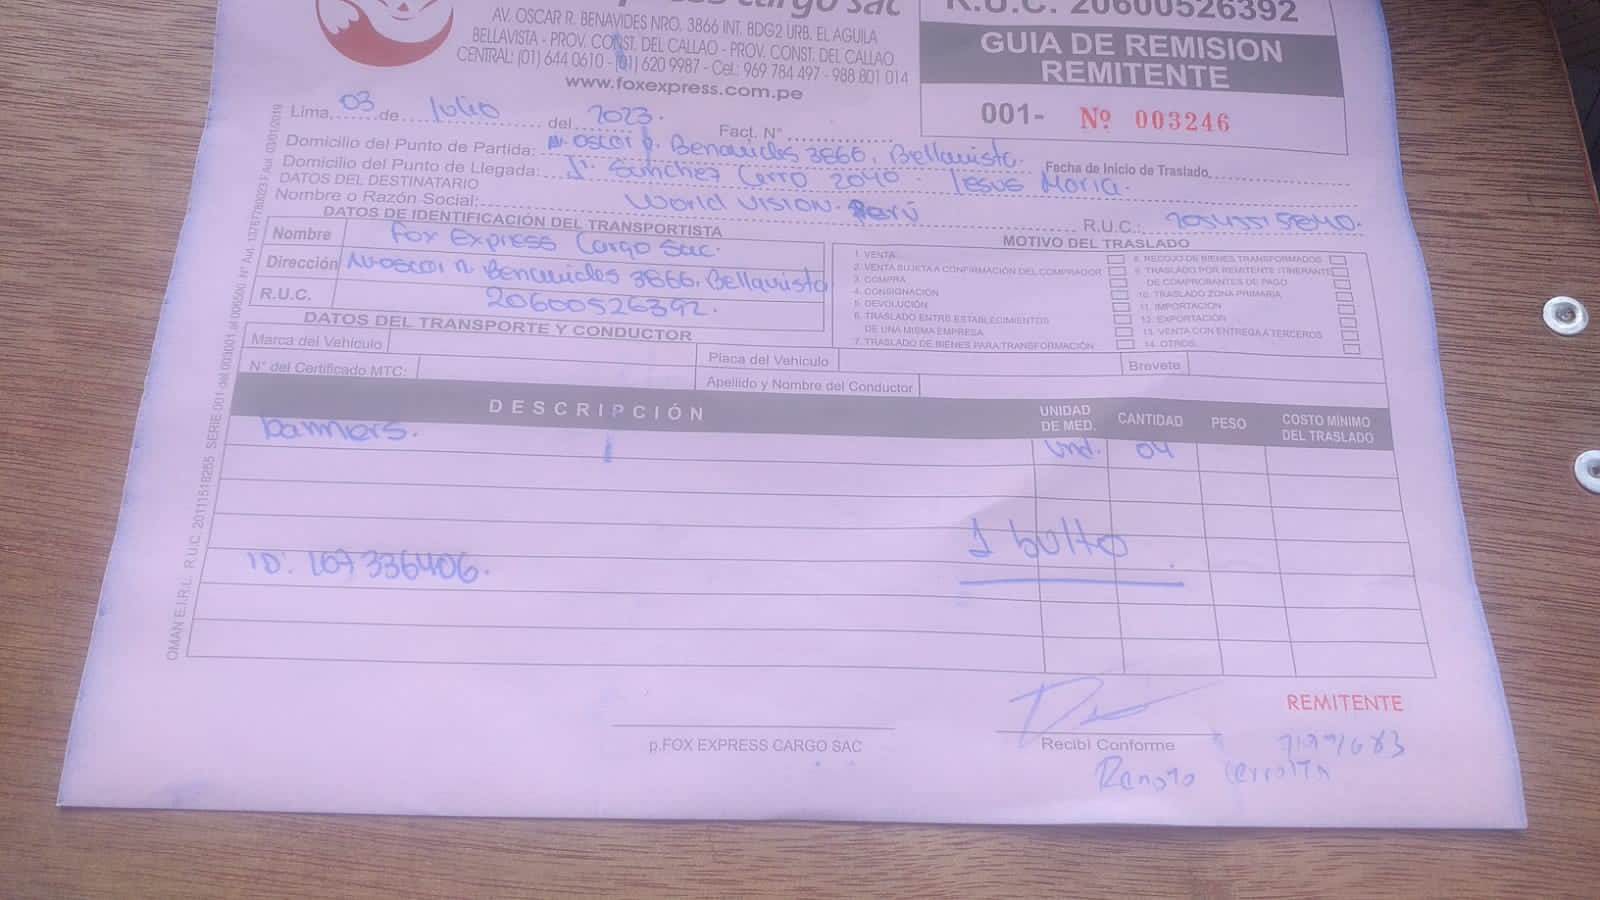 press cargo sac
AV. OSCAR R. BENAVIDES NRO. 3866 INT. BDG2 URB. EL AGUILA
BELLAVISTA - PROV. CONST. DEL CALLAO - PROV. CONST. DEL CALLAO
CENTRAL: (01) 644 0610 - (01) 620 9987 - Cel.: 969 784 497 - 988 801 014
www.foxexpress.com.pe
R.U.C. 20600526392
GUIA DE REMISION
REMITENTE
001- Nº 003246
Lima, 03 de Julio del 2023. Fact. N°
Domicilio del Punto de Partida: Av. Oscar R. Benavides 3866, Bellavista.
Fecha de Inicio de Traslado
Domicilio del Punto de Llegada: Jr. Sanchez Cerro 2040 - Jesus Maria.
DATOS DEL DESTINATARIO
Nombre o Razón Social: World Vision Perú R.U.C.:
DATOS DE IDENTIFICACIÓN DEL TRANSPORTISTA
Nombre Fox Express Cargo Sac.
Dirección Av. Oscar R. Benavides 3866, Bellavista
R.U.C. 20600526392.
MOTIVO DEL TRASLADO
1. VENTA
2. VENTA SUJETA A CONFIRMACIÓN DEL COMPRADOR
3. COMPRA
4. CONSIGNACIÓN
5. DEVOLUCIÓN
6. TRASLADO ENTRE ESTABLECIMIENTOS
DE UNA MISMA EMPRESA
7. TRASLADO DE BIENES PARA TRANSFORMACIÓN
8. RECOJO DE BIENES TRANSFORMADOS
9. TRASLADO POR REMITENTE ITINERANTE
DE COMPROBANTES DE PAGO
10. TRASLADO ZONA PRIMARIA
11. IMPORTACIÓN
12. EXPORTACIÓN
13. VENTA CON ENTREGA A TERCEROS
14. OTROS
DATOS DEL TRANSPORTE Y CONDUCTOR
Marca del Vehículo Placa del Vehículo Brevete
N° del Certificado MTC: Apellido y Nombre del Conductor
DESCRIPCIÓN UNIDAD DE MED. CANTIDAD PESO COSTO MÍNIMO DEL TRASLADO
banners. Und. 04
1 bulto
ID: 167336406.
REMITENTE
p.FOX EXPRESS CARGO SAC
Recibí Conforme
Renato